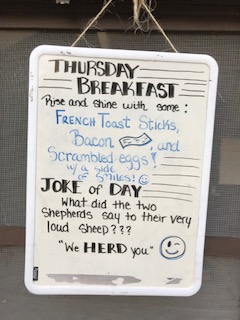 THURSDAY
BREAKFAST
Rise and shine with some:
FRENCH Toast Sticks,
Bacon, and
Scrambled eggs!
w/ a side
of smiles!
JOKE of DAY
What did the two
Shepherds say to their very
loud sheep???
"We HERD you."